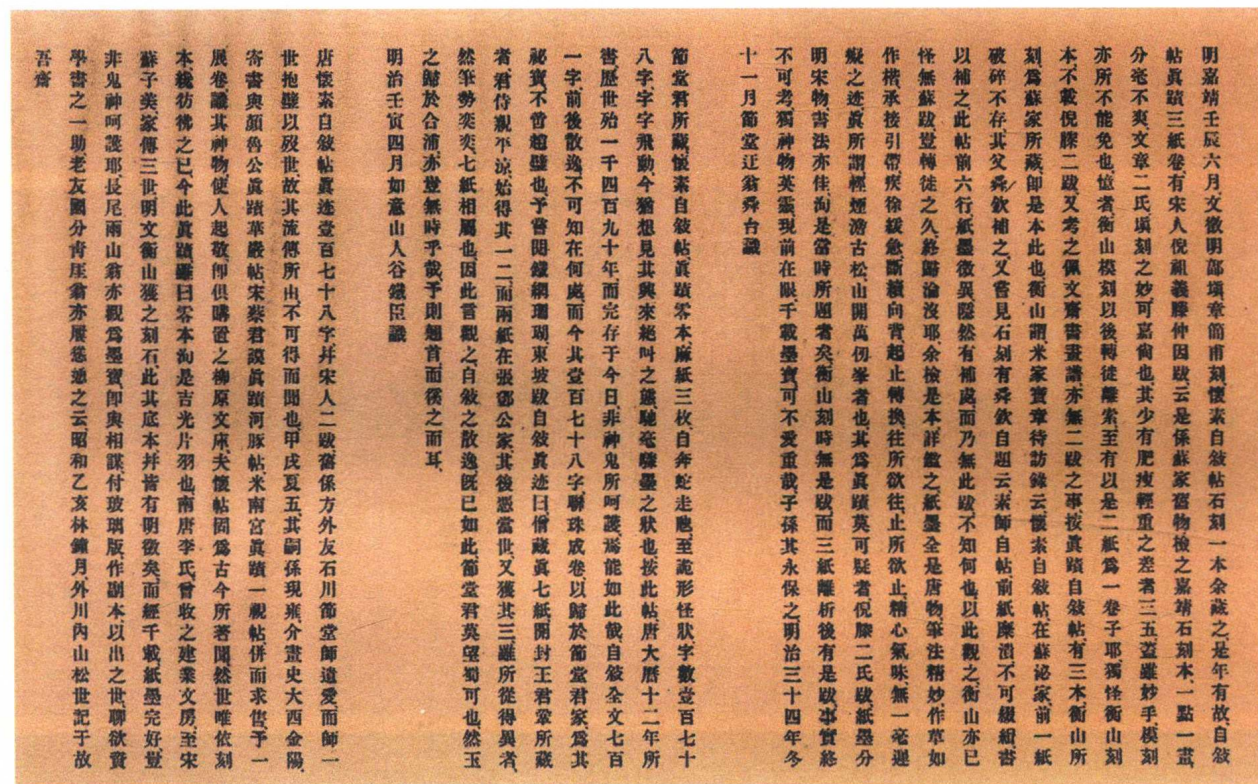 明嘉靖壬辰六月、文徵明部塡章簡甫刻懷素自敍帖石刻一本余藏之、是年有故、自敍
帖眞蹟三紙卷有宋人倪祖義滕仲因跋、云是係蘇家舊物、檢之嘉靖石刻本、一點一畫、
分毫不爽、文章二氏塡刻之妙可嘉尙也、其少有肥瘦輕重之差者三五、蓋雖妙手、模刻
亦所不能免也、憶者衡山模刻以後、轉徒離索、至有以是二紙爲一卷子耶、獨怪衡山刻
本、不載倪滕二跋、又考之佩文齋書畫譜、亦無二跋之事、按眞蹟自敍帖、有三本、衡山所
刻、爲蘇家所藏、卽是本此也、衡山謂米家寶章待訪錄云、懷素自敍帖、在蘇泌家、前一紙
破碎不存、其父舜欽補之、又嘗見石刻有舜欽自題云、素師自帖、前紙糜潰、不可綴緝、書
以補之、此帖前六行紙墨微異、隱然有補處、而乃無此跋、不知何也、以此觀之、衡山亦已
怪無蘇跋、豈轉徒之久、終歸淪沒耶、余檢是本、詳鑑之、紙墨全是唐物、筆法精妙、作草如
作楷、承接引帶、疾徐緩急、斷續向背、起止轉換、往所欲往、止所欲止、精心氣味、無一毫遲
癡之迹、眞所謂輕煙澹古松、山開萬仞峯者也、其爲眞蹟、莫可疑者、倪滕二氏跋、紙墨分
明宋物、書法亦佳、洵是當時所題者矣、衡山刻時無是跋、而三紙離析後有是跋、事實終
不可考、獨神物英靈、現前在眼、千載墨寶、可不愛重哉、子孫其永保之、明治三十四年冬
十一月節堂迂翁舜台識
節堂君所藏、懷素自敍帖、眞蹟零本、麻紙三枚、自奔蛇走虺、至詭形怪狀、字數壹百七十
八字、字字飛動、今猶想見其興來絕叫之態、馳毫驟墨之狀也、按此帖、唐大曆十二年所
書、歷世殆一千四百九十年、而完存于今日、非神鬼所呵護、焉能如此哉、自敍全文七百
一字、前後散逸、不可知在何處、而今其壹百七十八字、聯珠成卷、以歸於節堂君家、爲其
祕寶、不啻趙璧也、予嘗閱鐵網珊瑚、東坡跋自敍眞迹曰、僧藏眞七紙、開封王君鞏所藏
者、君侍親平涼、始得其一二、而兩紙在張鄧公家、其後懇當世又獲其三、雖所從得異者、
然筆勢奕奕、七紙相屬也、因此言觀之、自敍之散逸、旣已如此、節堂君莫望蜀可也、然玉
之歸於合浦、亦豈無時乎哉、予則翹首而徯之而耳、
明治壬寅四月如意山人谷鐵臣識
唐懷素自敍帖眞迹壹百七十八字、幷宋人二跋、舊係方外友石川節堂師遺愛、而師一
世抱璧以歿世、故其流傳所由、不可得而聞也、甲戌夏五、其嗣孫現雍介畫史大西金陽、
寄書與顏魯公眞蹟華嚴帖、宋蔡君謨眞蹟河豚帖、米南宮眞蹟一親帖倂而求售、予一
展卷、讖其神物、使人起敬、卽俱購置之柳原文庫、夫懷帖固爲古今所著聞、然世唯依刻
本、纔彷彿之已、今此眞蹟、雖曰零本、洵是吉光片羽也、南唐李氏、曾收之建業文房、至宋
蘇子美、家傳三世、明文衡山獲之刻石、此其底本、幷皆有明徵矣、而經千載、紙墨完好、豈
非鬼神呵護耶、長尾雨山翁亦觀爲墨寶、卽與相謀、付玻璃版作副本、以出之世、聊欲資
學書之一助、老友國分靑厓翁、亦屢慫慂之云、昭和乙亥林鐘月、外川內山松世記于故
吾齋